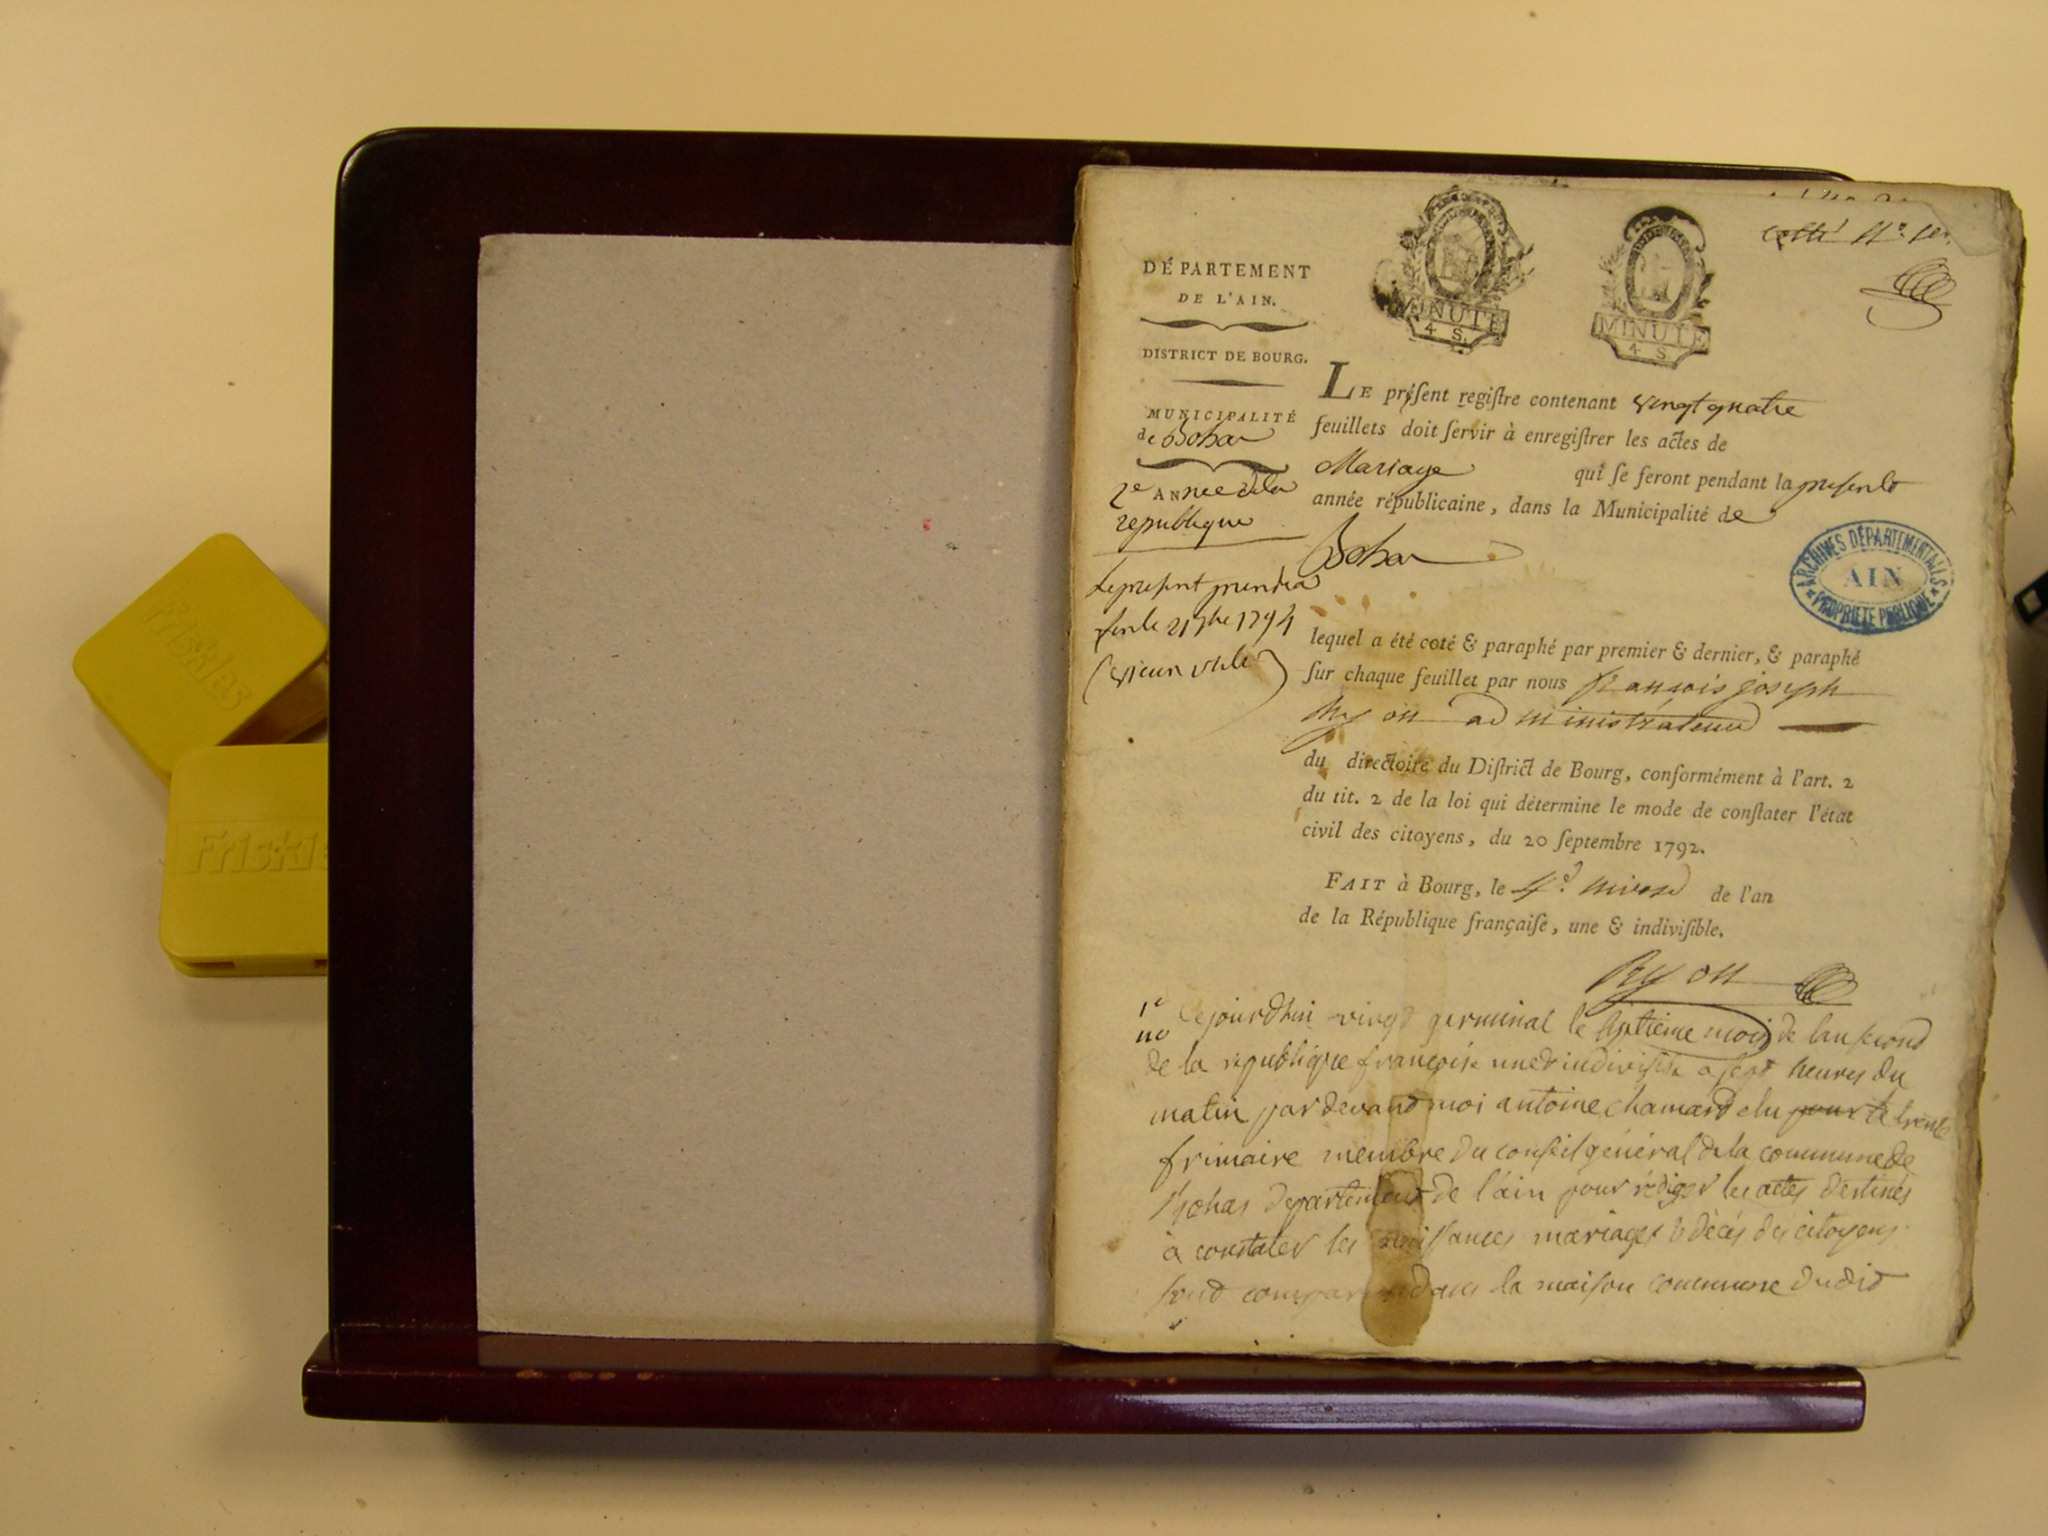 cotté No. 1er.
MINUTE
4 S.
MINUTE
4 S
DÉPARTEMENT
DE L'AIN.
DISTRICT DE BOURG.
MUNICIPALITÉ
de Bohas
2e ANnée de la
republique
Le present prendra
fin le 21 7bre 1794
(vieux stile)
LE préſent regiſtre contenant vingt quatre
feuillets doit ſervir à enregiſtrer les actes de
Mariage qui ſe feront pendant la presente
année républicaine, dans la Municipalité de
Bohas
ARCHIVES DÉPARTEMENTALES
AIN
PROPRIÉTÉ PUBLIQUE
lequel a été coté & paraphé par premier & dernier, & paraphé
ſur chaque feuillet par nous françois joseph
administrateur
du directoire du Diſtrict de Bourg, conformément à l'art. 2
du tit. 2 de la loi qui détermine le mode de conſtater l'état
civil des citoyens, du 20 ſeptembre 1792.
FAIT à Bourg, le 4e. nivose de l'an
de la République françaiſe, une & indiviſible.
1e
no Cejourdhui vingt germinal le septieme mois de lan second
de la republique françoise une et indivisible a sept heures du
matin par devant moi antoine chamard elu pour le trente
frimaire membre du conseil général de la commune de
Bohas departement de l'ain pour rédiger les actes destinés
à constater les naissances mariages & décés des citoyens
sont comparus dans la maison commune dudit
Friskies
Friskies